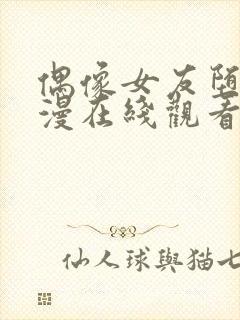 偶像女友堕
漫在綫觀看
仙人球與猫七